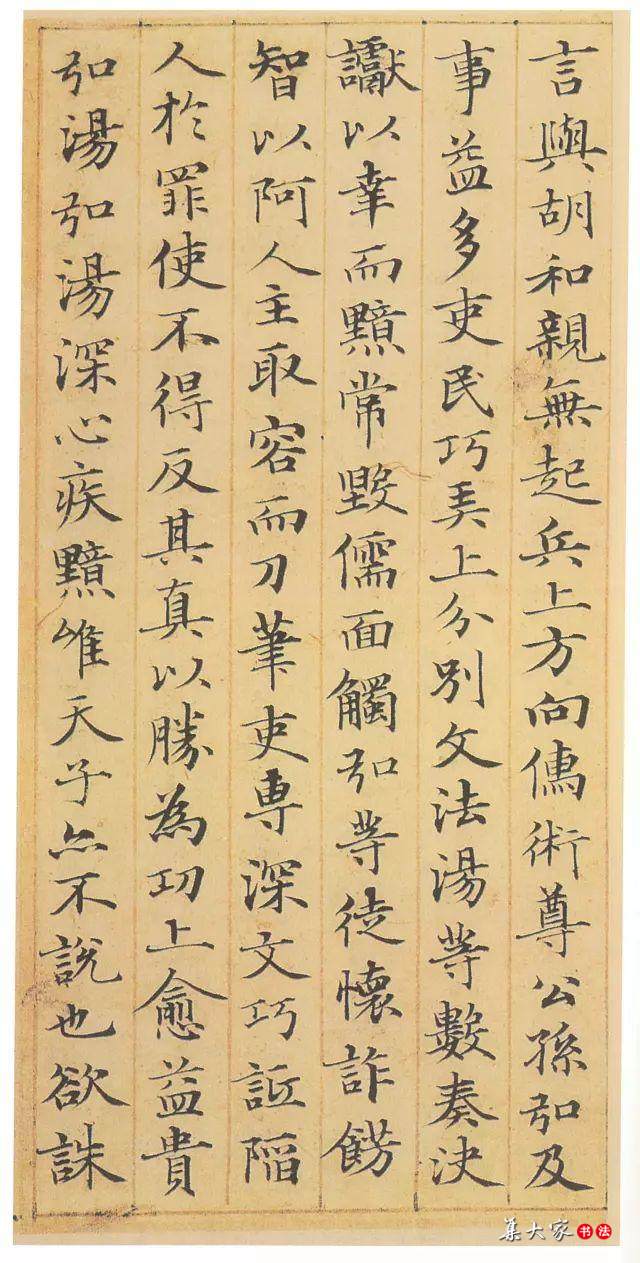 言與胡和親無起兵上方向儁術尊公孫弘及
事益多吏民巧弄上分別文法湯等數奏決
讞以幸而黯常毀儒面觸弘等徒懷詐餝
智以阿人主取容而刀筆吏専深文巧詆陷
人於罪使不得反其真以勝為功上愈益貴
弘湯弘湯深心疾黯唯天子亦不説也欲誅
集大家书法